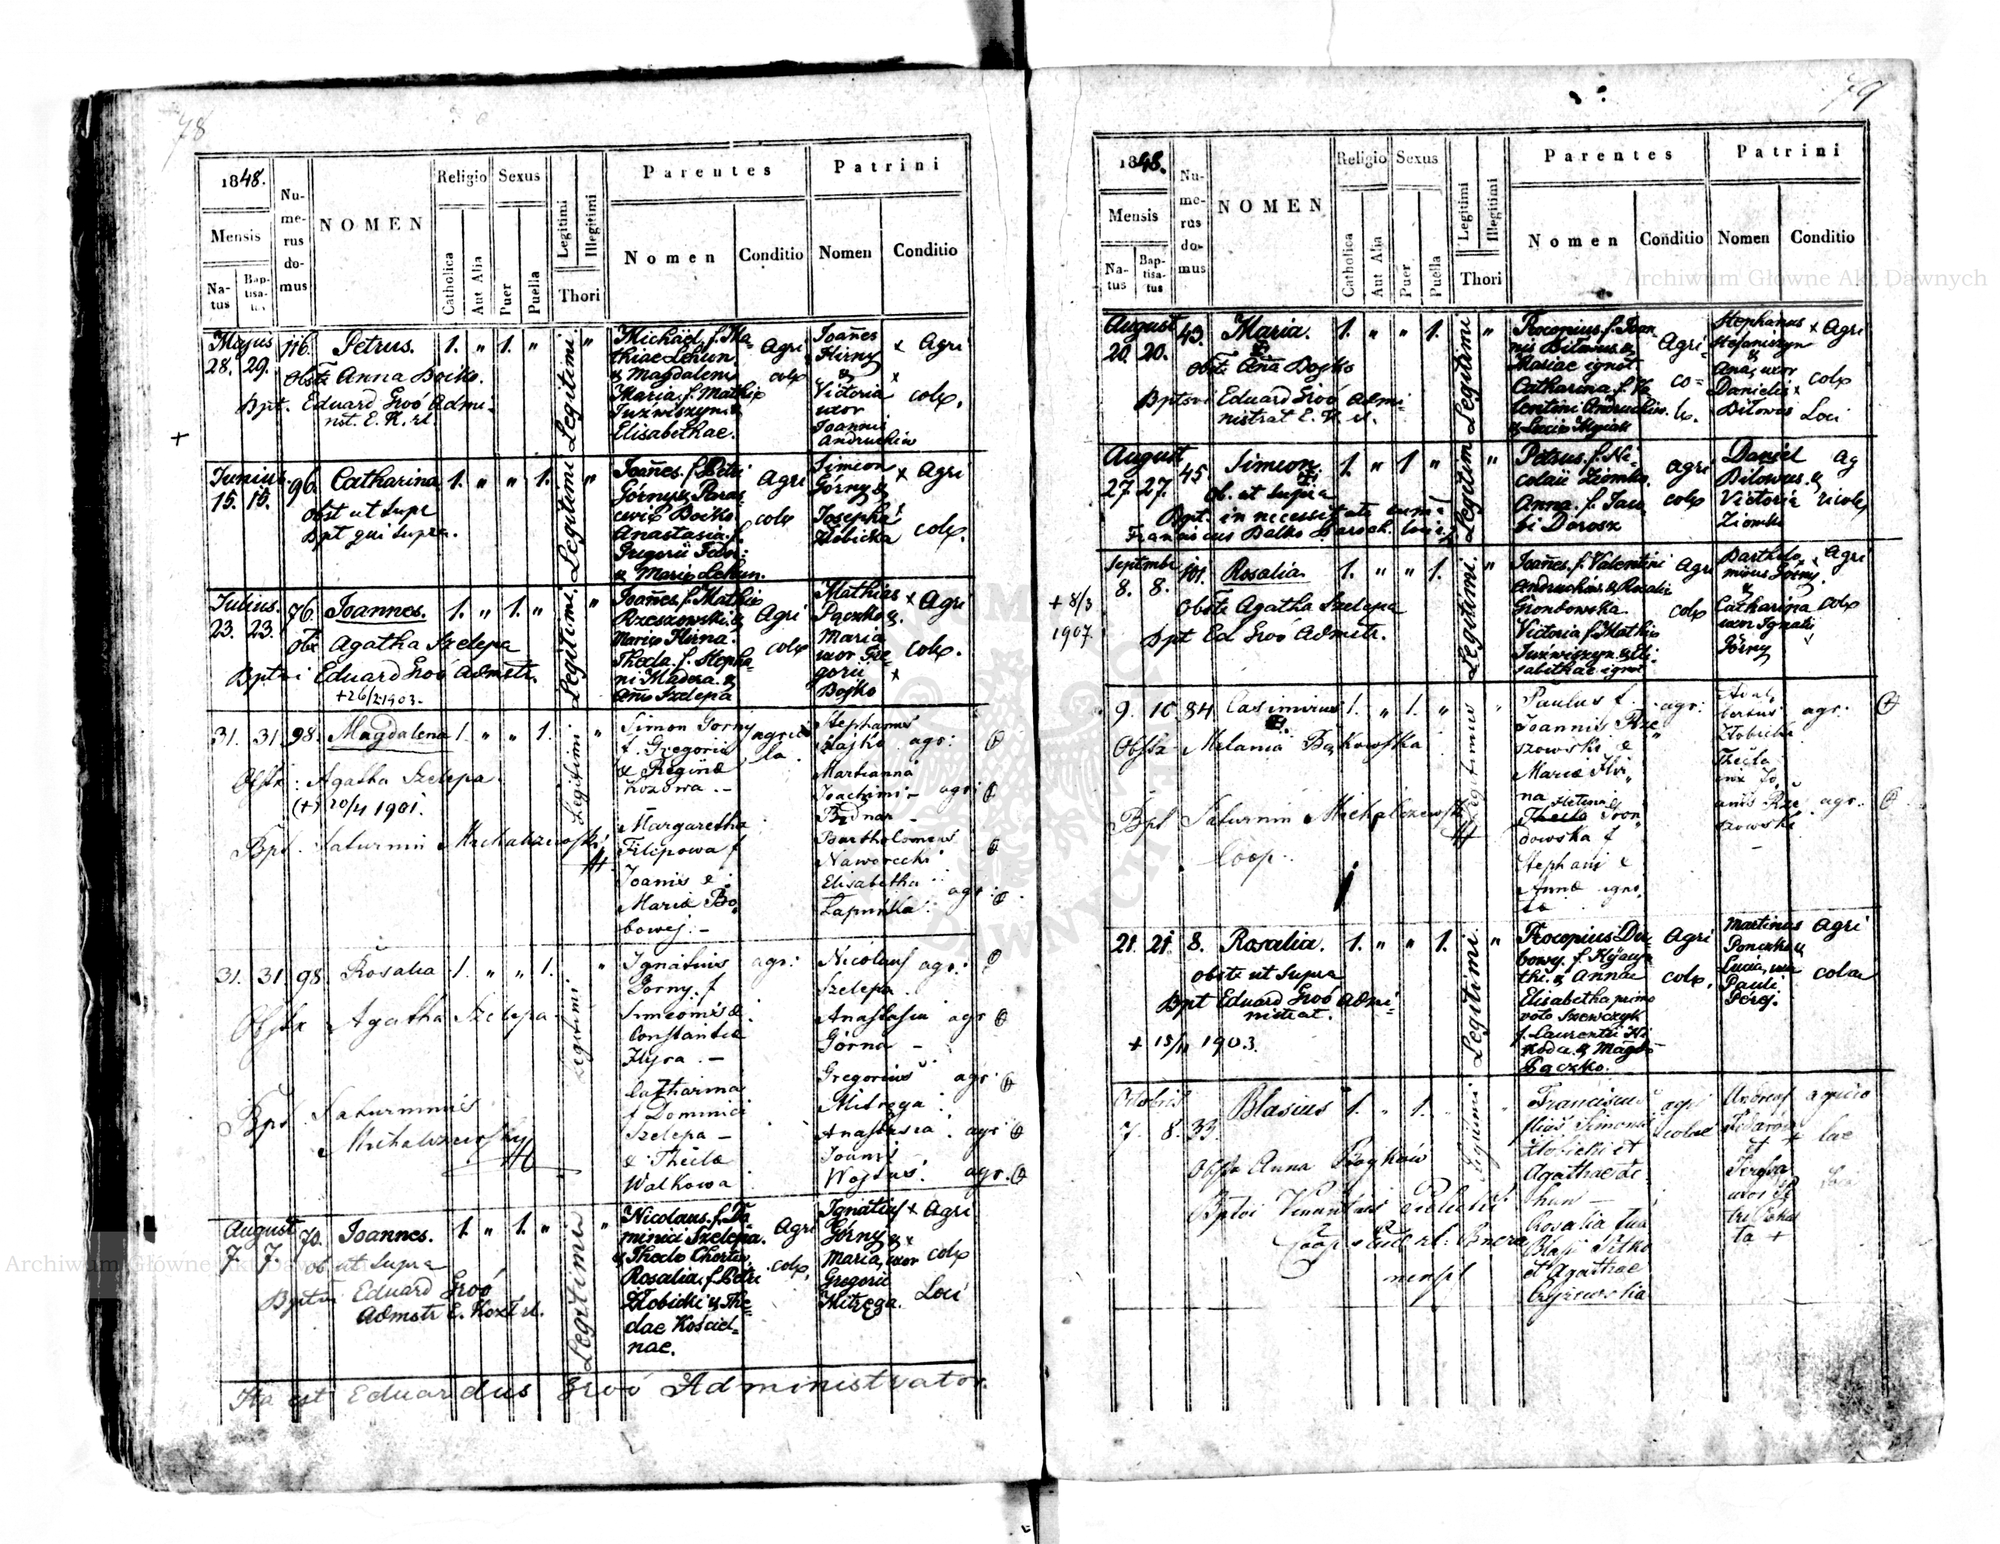 78
1848.
Mensis
Natus
Baptisatus
Numerus domus
NOMEN
Religio
Catholica
Aut Alia
Sexus
Puer
Puella
Legitimi
Illegitimi
Thori
Parentes
Nomen
Conditio
Patrini
Nomen
Conditio
Majus
28. 29. 116. Petrus. 1. " 1. "
Obst: Anna Boiko.
Bpt. Eduard Groó Admi-
nst. E. K. rl.
Legitimi
Michael f. Ma-
thiae Lehun
& Magdalenæ
Maria f. Mathiæ
Juzwiszyn &
Elisabethae.
Agri
colæ
Joañes
Hirny
&
Victoria
uxor
Joannis
Andruchiw
Agri
colæ.
Junius
15. 15. 96. Catharina 1. " " 1.
obst ut Supr
Bpt qui Supra.
Legitimi
Joañes f. Petri
Górny & Paras
ceviæ Boiko.
Anastasia f.
Gregorii Fedor:
& Mariæ Lehun.
Agri
colæ
Simeon
Górny &
Josepha
Złobicka
Agri
colæ.
Julius.
23. 23. 76. Joannes. 1. " 1. "
obst Agatha Szelepa
Bptvi Eduard Groó Admstr.
+26/2 1903.
Legitimi.
Joañes f. Mathiæ
Rzeszowski &
Mariæ Hirna.
Thecla f. Stepha-
ni Madera &
Annæ Szelepa
Agri
colæ
Mathias
Pączko &
Maria
uxor Gre-
gorii
Bojko
Agri
colæ.
31. 31. 98. Magdalena 1. " " 1.
Obstx: Agatha Szelepa
(+) 20/4 1901.
Bpt. Saturnin Michalszewski
Legitimi
Simon Gorny
f. Gregorii
& Reginæ
Margaretha
Filipowa f
Joanis &
Mariæ Bo-
bowej. -
agrico
la.
Stephanus
Hajko agr:
Marianna
Joachimi - agr:
Bednar -
Bartholomeus
Naworecki
Elisabetha
Łapińska agr:
31. 31. 98. Rosalia 1. " " 1.
Obstx Agatha Szelepa
Bpt. Saturninus
Michalszewsky
Legitimi
Ignatius
Gorny. f
Simeonis &
Constantiæ
Hyra. -
Catharina
f Dominici
Szelepa -
& Theclæ
Walkowa
agr:
Nicolaus agr:
Szelepa.
Anastasia agr
Górna -
Gregorius agr
Mitręga
Anastasia agr
Joanis
Wojtas agr.
August
7. 7. 70. Joannes. 1. " 1. "
ob ut Supra
Bptvi Eduard Groó
Admstr E. Kozł rl.
Legitimi
Nicolaus f. Do-
minici Szelepa.
& Theclæ Chorta
Rosalia f. Petri
Złobicki & The-
clae Kościel-
nae.
Agri
colæ,
Ignatius
Górny &
Maria, uxor
Gregorii
Mitręga.
Agri
colæ
Loci
Ita est Eduardus Groó Administrator.
79
1848.
Mensis
Natus
Baptisatus
Numerus domus
NOMEN
Religio
Catholica
Aut Alia
Sexus
Puer
Puella
Legitimi
Illegitimi
Thori
Parentes
Nomen
Conditio
Patrini
Nomen
Conditio
August
20. 20. 43. Maria. 1. " " 1.
Obst: Aña Bojko
Bptsvi Eduard Groó Admi-
nistrat E. K. rl.
Legitimi
Procopius f. Joan
nis Biłowus &
Mariae ignot
Catharina f. Va
lentini Andruchiw.
Agri-
co-
læ.
Stephanus
Stefaniszyn
&
Ana, uxor
Danielis
Biłowus
Agri
colæ
Loci
August
27. 27. 45 Simeon. 1. " 1 "
ob. ut Supra
Bpt. in necessitate
Franciscus Balko Paroch. loci
Legitim
Petrus f. Ni-
colaii Ziomko.
Anna f. Jacu
bi Dorosz
agri
colæ
Daniel
Biłowus &
Victoria
Ziomko
Ag
ricolæ
Septembr
8. 8. 101. Rosalia. 1. " " 1.
Obst: Agatha Szelepa
Bpt Ed Groó Admstr.
+ 8/3
1907.
Legitimi.
Joañes f. Valentini
Andruchiw & Rosalie
Grondowska
Victoria f. Mathiæ
Juzwiszyn & Eli-
sabethae ignot
Agri
colæ
Bartholo
mæus Górny
&
Catharina
uxor Ignati
Górny
Agri
colæ
9. 10. 84 Casimirus 1. " 1. "
Obstx Melania Bąkowska
Bpt Saturnin Michalszewski
Coop:
Legitimus
Paulus f.
Joannis Rze
szowski &
Mariæ Hir
na
Helena
Thecla Gron
dowska f
Stephani &
Annæ igno
tæ
agr:
Adal
bertus
Złobicki
Thecla
uxor Jo
anis Rze
szowski
agr:
agr.
21. 21. 8. Rosalia. 1. " " 1.
obstx ut Supra
Bpt Eduard Groó Admi-
nistrat.
+ 18/11 1903.
Legitimi.
Procopius Du
bowy. f. Hijacyn
thi. & Annae
Elisabetha primo
voto Szewczyk
f. Laurentii Ni
koda & Magd
Pączko.
Agri
colæ.
Martinus
Ponczka &
Lucia, uxor
Pauli
Péreg.
Agri
colae
Octobris
7. 8. 33. Blasius 1. " 1.
Obstx Anna Boyków
Bptvi Vincentius
Coop.
Legitimi
Franciscus
filius Simonis
Złobicki et
Agathae Le-
hun -
Rosalia
Blasii Petko
et Agathae
agri
colae
Andreas
Sidarów
et +
uxor
ta +
agrico
lae
Archiwum Główne Akt Dawnych
Archiwum Główne Akt Dawnych